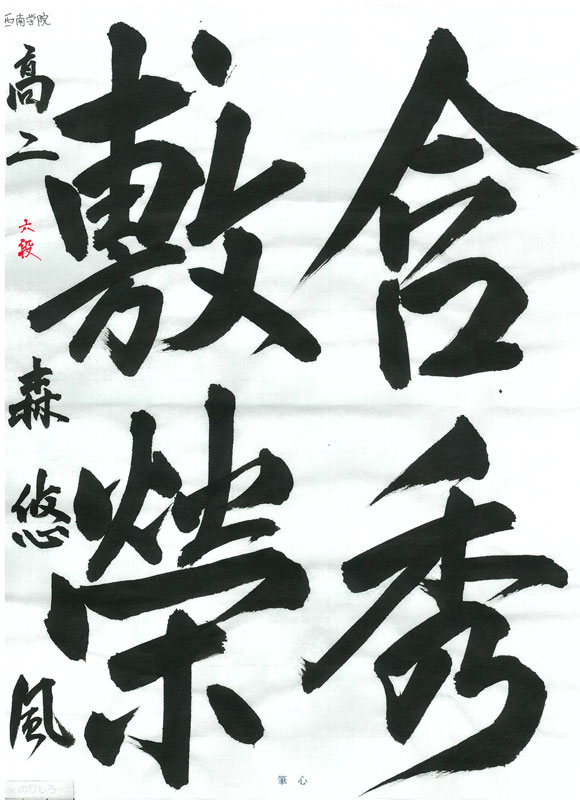 含秀
敷榮
西南学院
高二 六段 森 悠 風
筆心
のりしろ